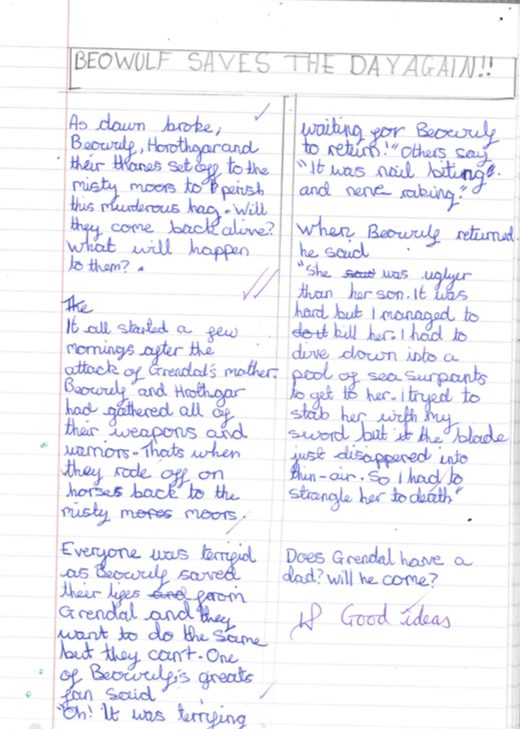 BEOWULF SAVES THE DAY AGAIN!!
As dawn broke,
Beowulf, Horothgar and
their thanes set off to the
misty moors to perish
this murderous hag. Will
they come back alive?
what will happen
to them?.
The
It all started a few
mornings after the
attack of Grendal's mother.
Beowulf and Hrothgar
had gathered all of
their weapons and
warriors. Thats when
they rode off on
horses back to the
misty mores moors.
Everyone was terrifid
as Beowulf saved
their lifes and from
Grendal and they
want to do the same
but they can't. One
of Beowulf's greats
fan said
"Oh! It was terrying
waiting for Beowulf
to return!" Others say
"It was nail biting
and nerve raking."
when Beowulf returned
he said
"She said was uglyer
than her son. It was
hard but I managed to
do it kill her. I had to
dive down into a
pool of sea surpants
to get to her. I tryed to
stab her with my
sword but it the blade
just disappered into
thin-air. So I had to
strangle her to death"
Does Grendal have a
dad? will he come?
Good ideas